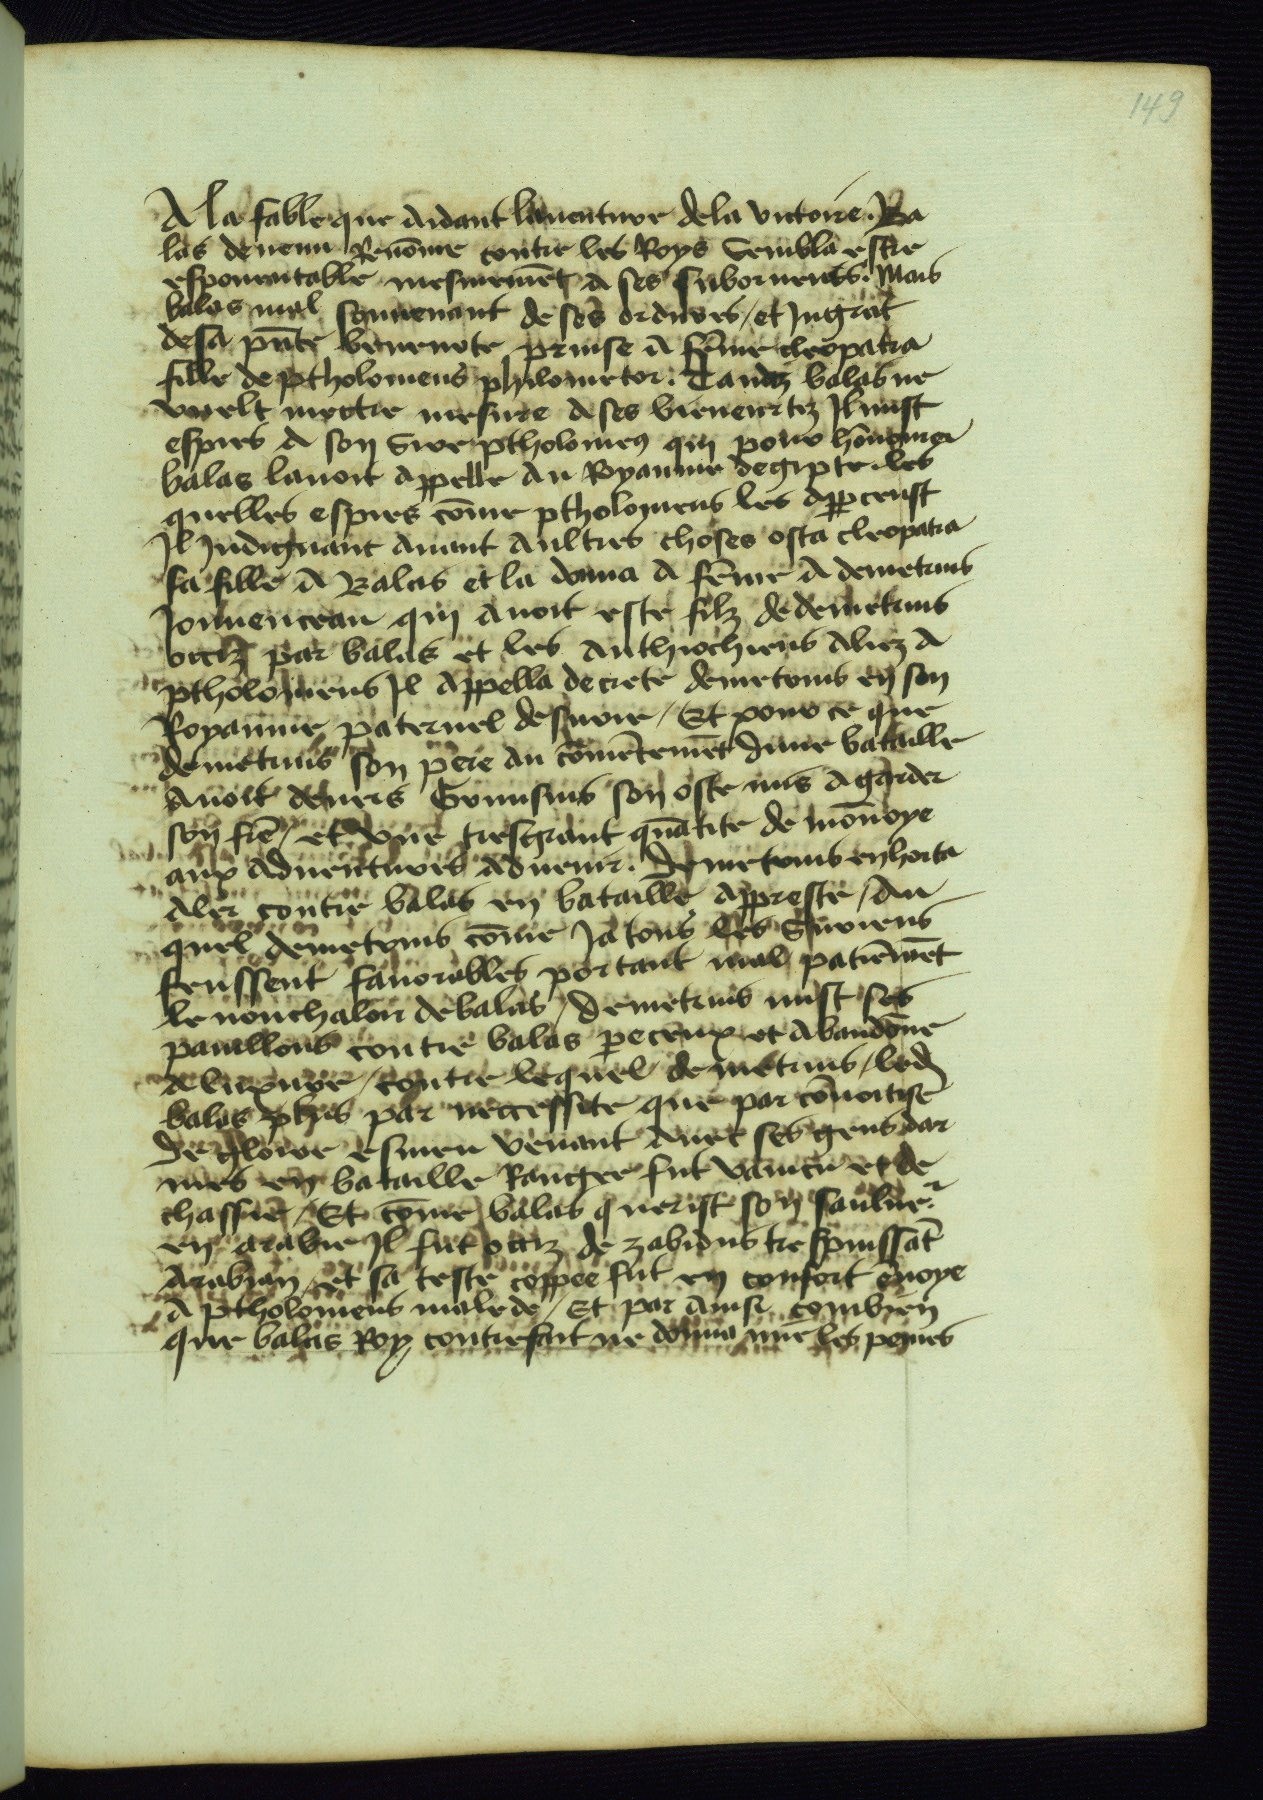 149
A la fable que aidant lauenture dela victoire. Ba
las deuenu Renōme contre les Roys Sembla estre
espouentable mesmemēt a ses suborneurs. Mais
balas mal souuenant de ses ordures / et Ingrat
desa pn̄te beneurte prinse a fēme cleopatra
fille de ptholomeus philometor. Tandiz balas ne
vuelt mectre mesure a ses bieneurtez Il mist
espies a son Sire ptholomeꝰ qui pour hōnourer
balas lauoit appelle au Royaume degipte. les
quelles espies cōme ptholomeus les apperceust
Il Indignant auant aultres choses osta cleopatra
sa fille a Balas et la donna a fēme a demetrius
Jouuenceau qui auoit este filz de demetrius
occiz par balas et les Anthiochiens aliez a
ptholomeus Il appella de crete demetrius en son
Royaume paternel de surie / Et pour ce que
demetrius son pere au cōmēcemēt dune bataille
auoit deuers Gnusius son oste mis a garder
son frē / et vne tresgrant quātite de mōnoye
aux aduentures aduenir. demetrius enhorta
aler contre balas en bataille appreste / au
quel demetrius cōme Ja tous les Suriens
feussent fauorables portant mal patiēmēt
le nonchaloir de balas / demetrius mist ses
pauillons contre balas pereceux et abandōne
a luxure / contre lequel demetrius / led
balas plus par necessite que par cōuoitise
de gloire esmeu venant auec ses gens dar
mes en bataille Rangee fut vaincu et de
chassie / Et cōme balas querist son saulue.
en arabie Il fut occiz de zabidus trespuissāt
Arabian / et sa teste coppee fut en confort ēuoye
a ptholomeus malede / Et par ainsi combien
que balas Roy contrefait ne donna mie les peines